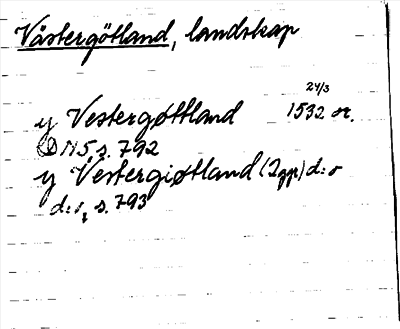 Västergötland, landskap
y Vestergøttland 24/3 1532 or.
DN 5 s. 792
y Vestergiøtland (2 gg) d:o
d:o, s. 793